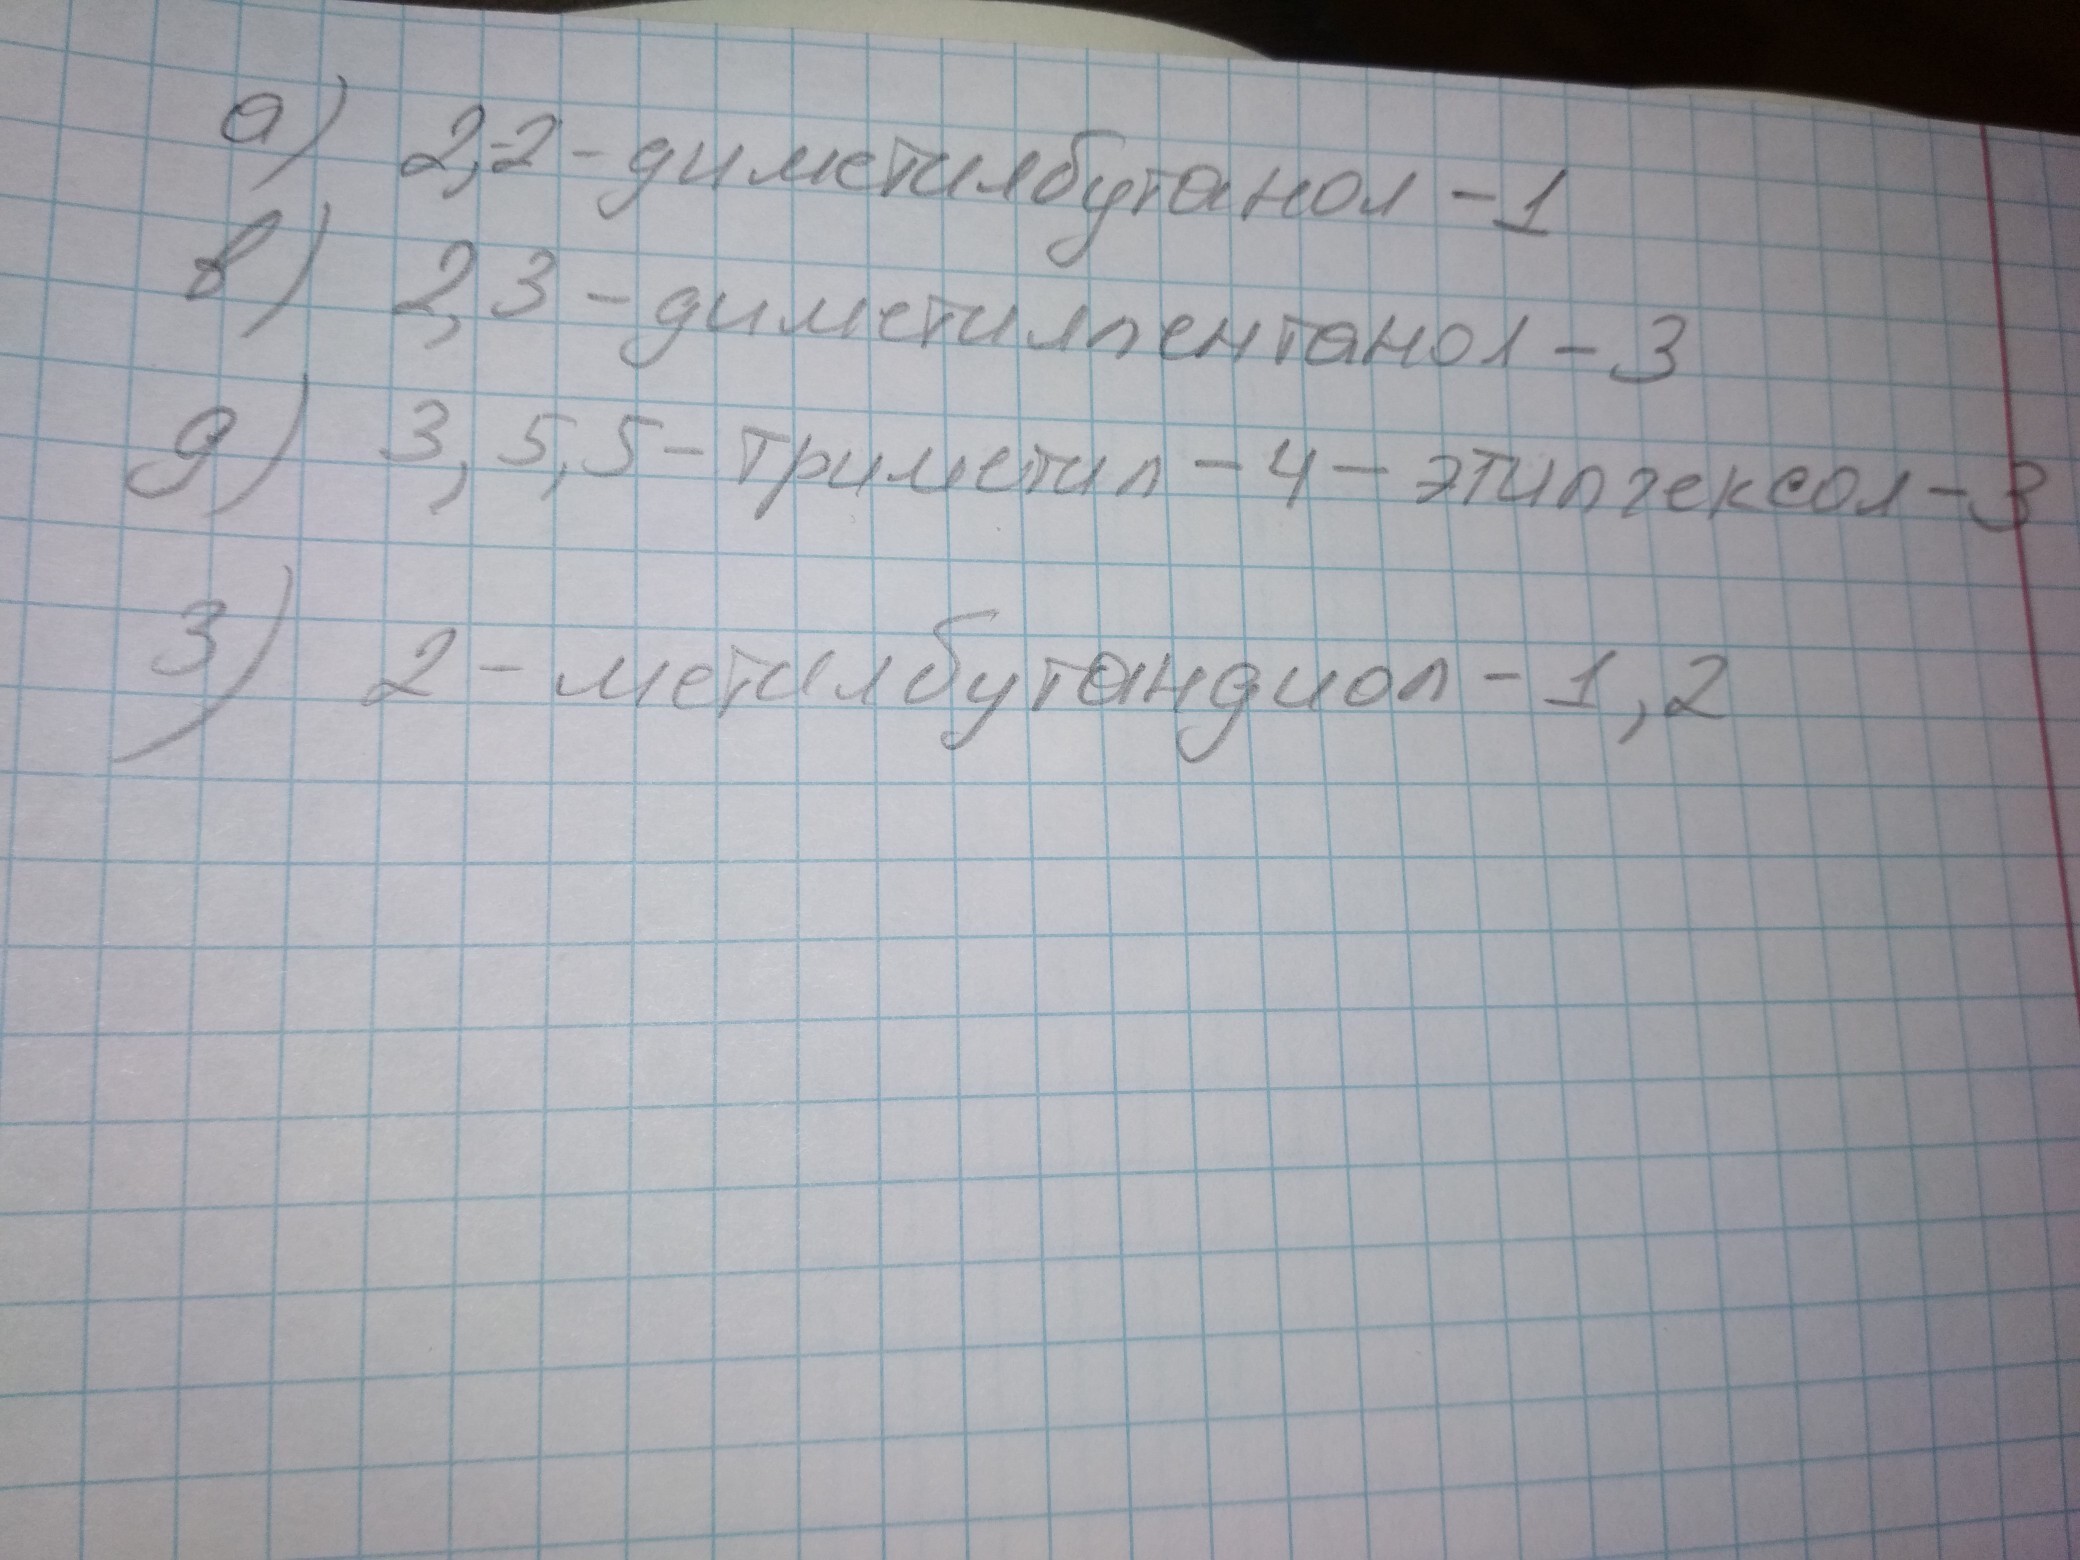 а) 2,2-диметилбутанол-1
в) 2,3-диметилпентанол-3
д) 3,5,5-триметил-4-этилгексол-3
з) 2-метилбутандиол-1,2